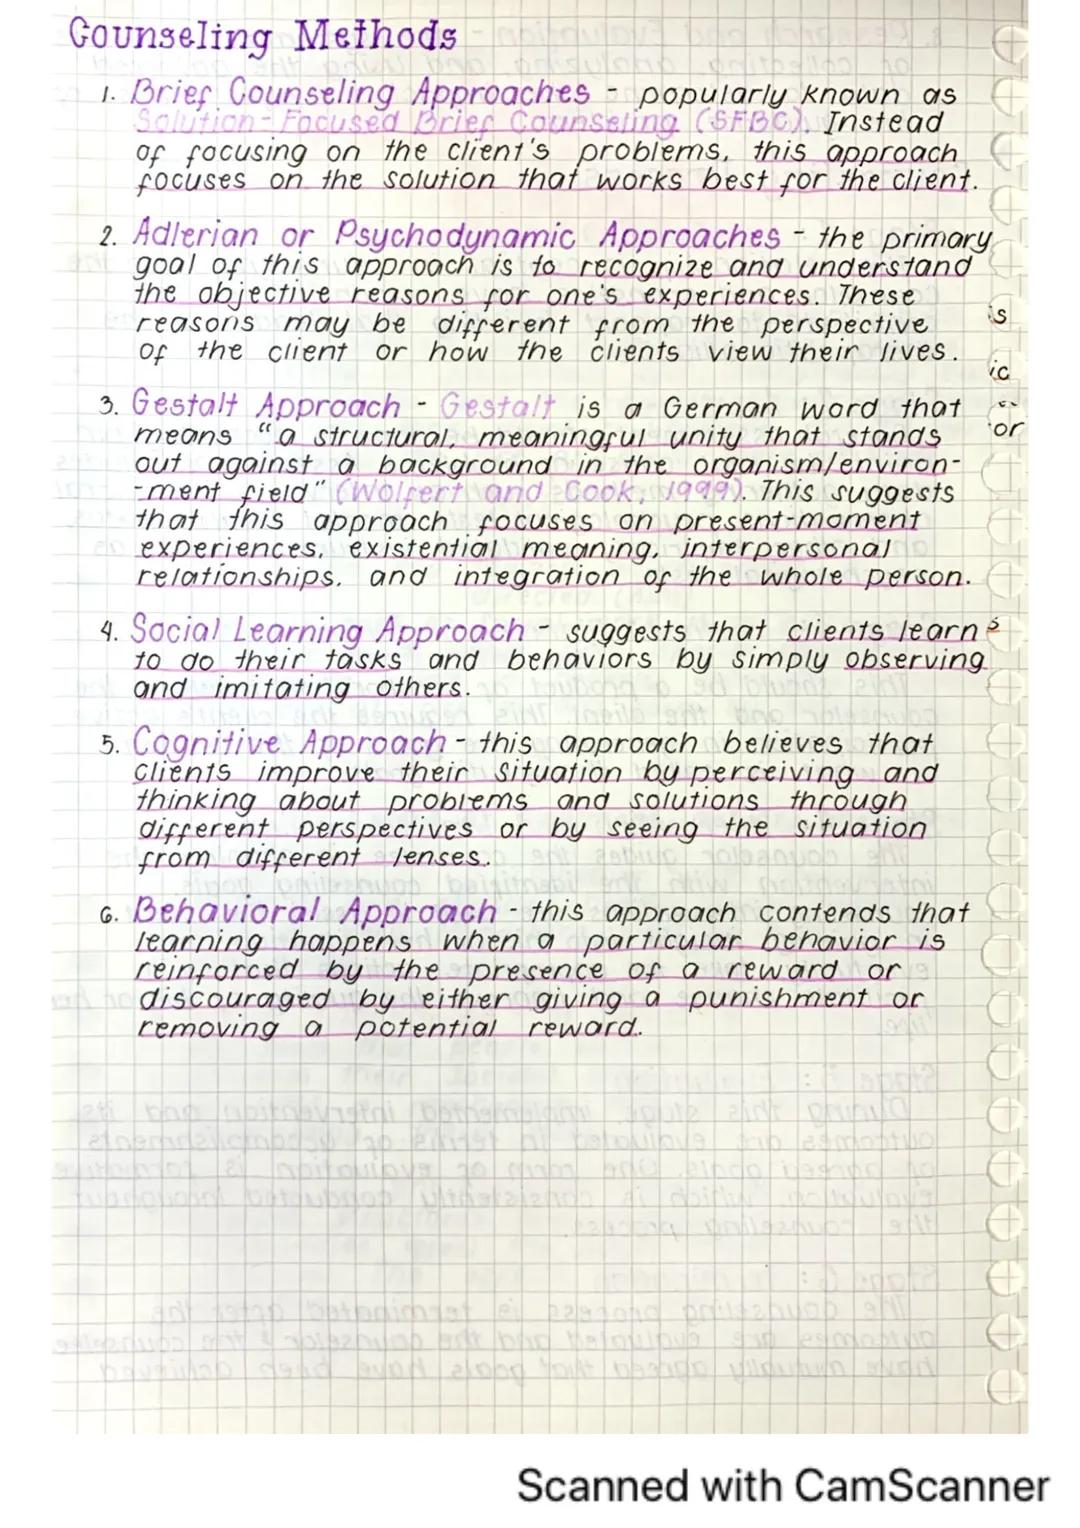 Counseling Methods
1. Brief Counseling Approaches - popularly known as
Solution-Focused Brief Counseling (SFBC). Instead
of focusing on the client's problems, this approach
focuses on the solution that works best for the client.
2. Adlerian or Psychodynamic Approaches - the primary
goal of this approach is to recognize and understand
the objective reasons for one's experiences. These
reasons may be different from the perspective
of the client or how the clients view their lives.
3. Gestalt Approach - Gestalt is a German word that
means "a structural, meaningful unity that stands
out against a background in the organism/environ-
-ment field" (Wolfert and Cook, 1999). This suggests
that this approach focuses on present-moment
experiences, existential meaning, interpersonal
relationships, and integration of the whole person.
4. Social Learning Approach - suggests that clients learn
to do their tasks and behaviors by simply observing
and imitating others.
5. Cognitive Approach - this approach believes that
clients improve their situation by perceiving and
thinking about problems and solutions through
different perspectives or by seeing the situation
from different lenses.
6. Behavioral Approach - this approach contends that
learning happens when a particular behavior is
reinforced by the presence of a reward or
discouraged by either giving a punishment or
removing a potential reward.
Scanned with CamScanner